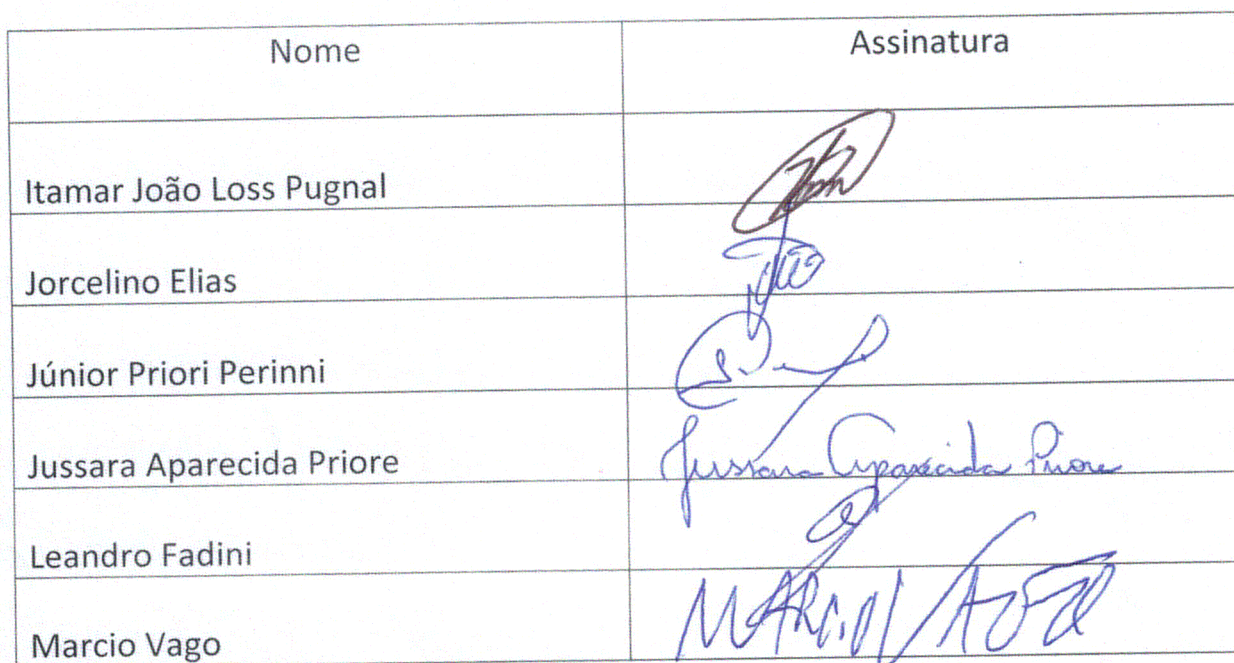 Nome Assinatura
Itamar João Loss Pugnal
Jorcelino Elias
Júnior Priori Perinni
Jussara Aparecida Priore Jussara Aparecida Priore
Leandro Fadini
Marcio Vago